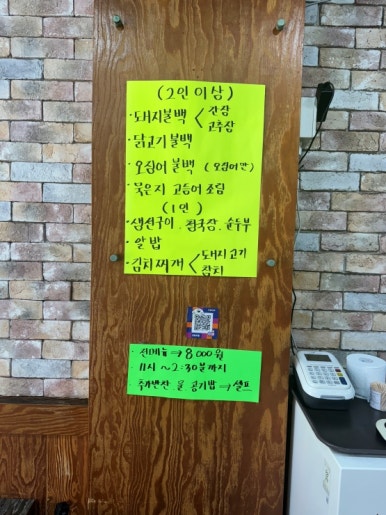 (2인 이상)
· 돼지불백 < 간장
고추장
· 닭고기불백
· 오징어 불백 (오징어만)
· 묵은지 고등어 조림
(1인)
· 생선구이 . 청국장 . 순두부
· 알밥
· 김치찌개 < 돼지고기
참치
· 전메뉴 ⇒ 8,000원
11시 ~ 2:30분까지
추가반찬 물 공기밥 ⇒ 셀프